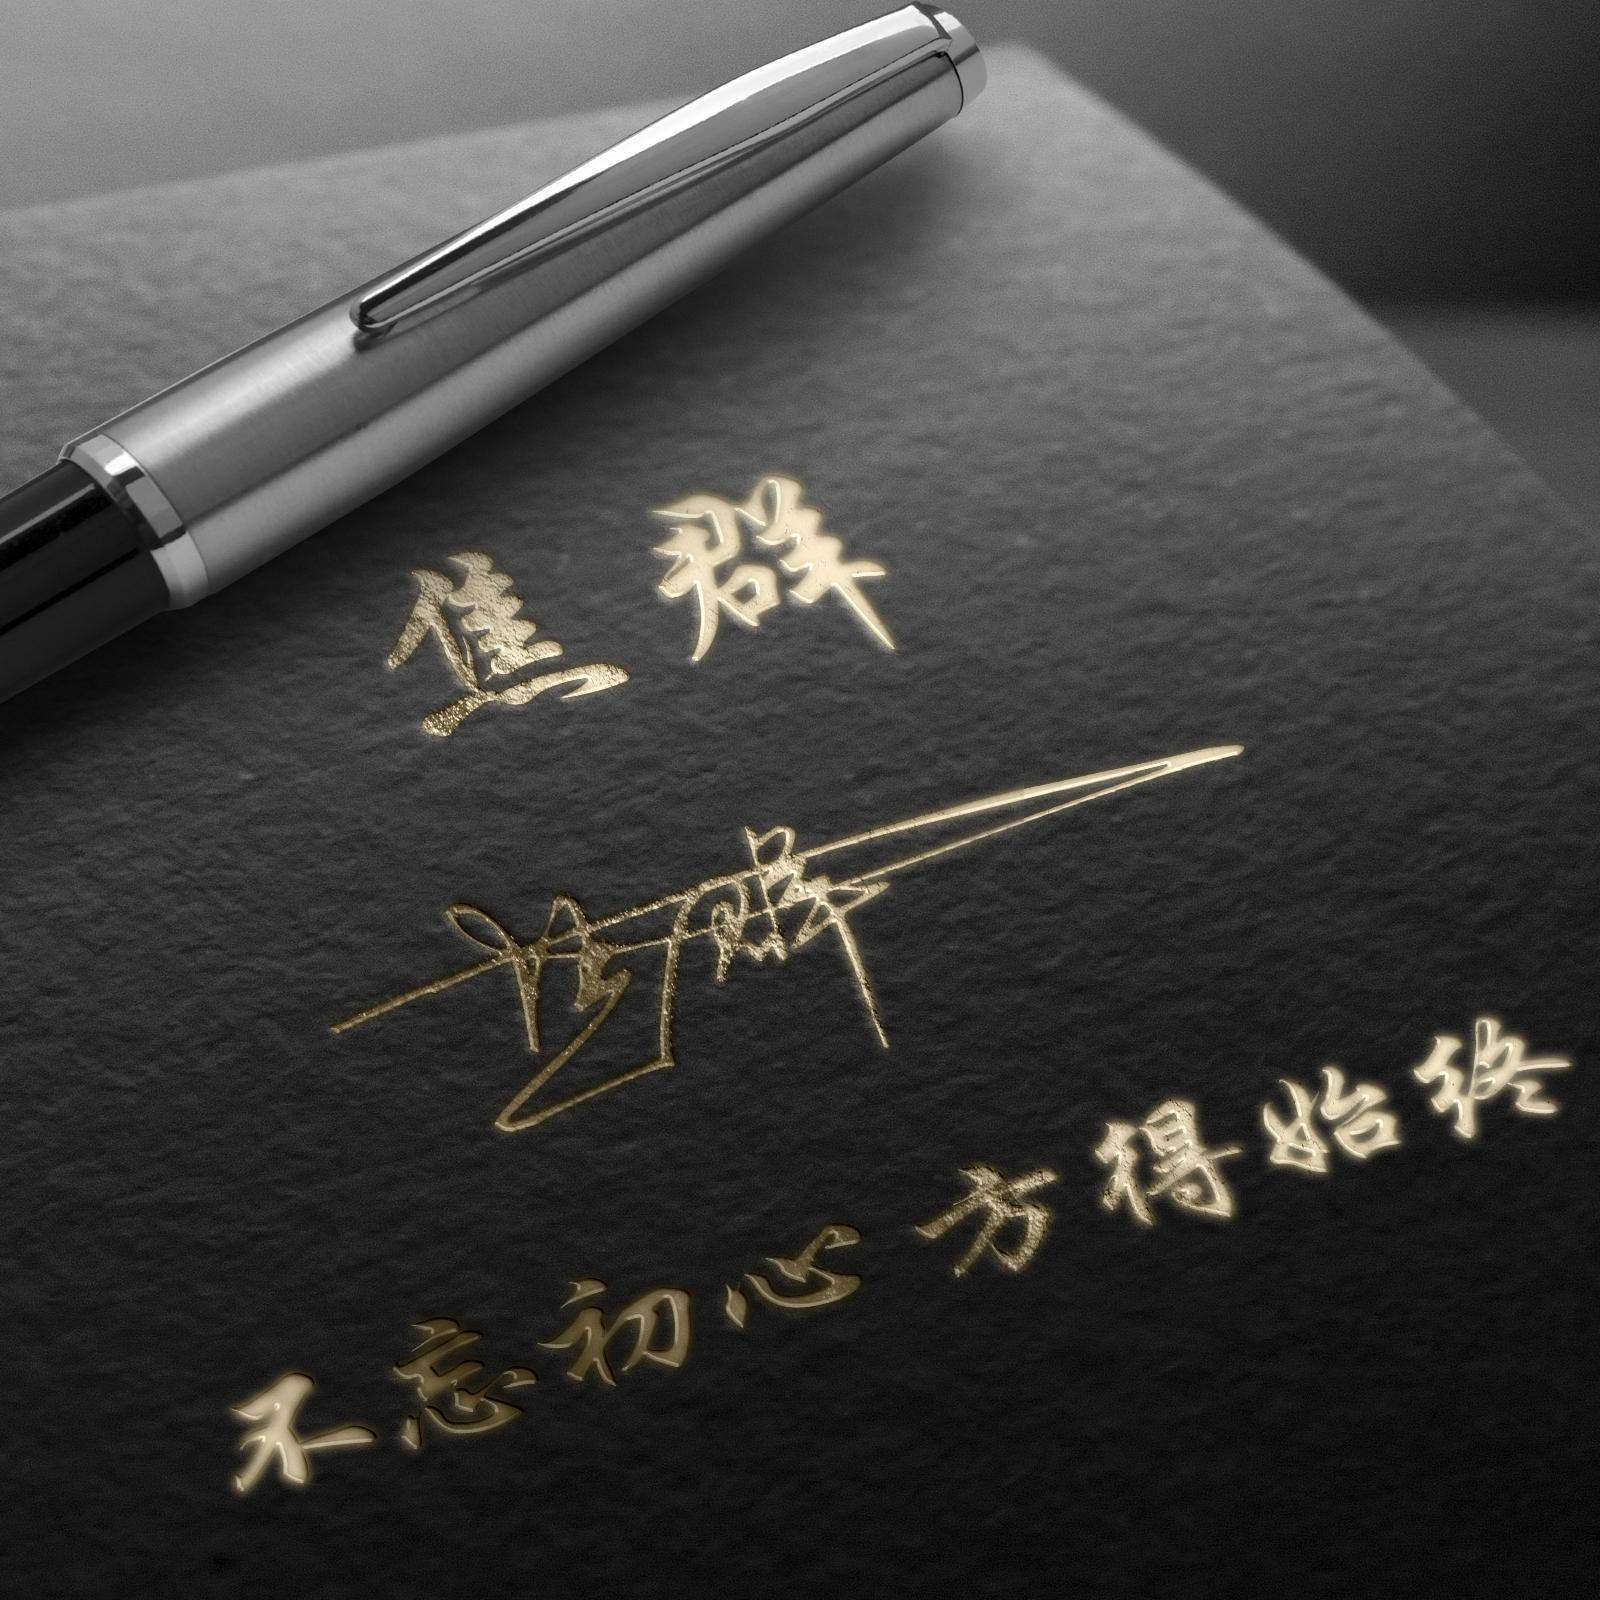 焦群
焦群
不忘初心方得始终